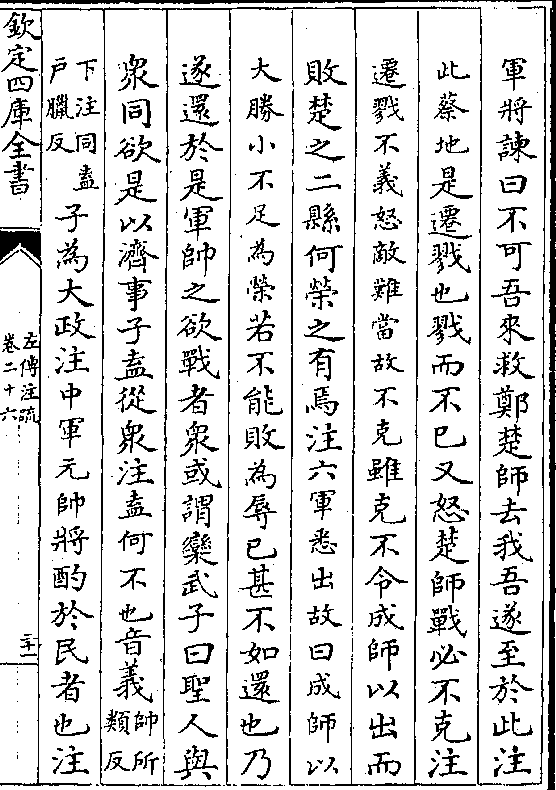 軍將諫曰不可吾來救鄭楚師去我吾遂至於此注
此蔡地是遷戮也戮而不已又怒楚師戰必不克注
遷戮不義怒敵難當故不克雖克不令成師以出而
敗楚之二縣何榮之有焉注六軍悉出故曰成師以
大勝小不足為榮若不能敗為辱已甚不如還也乃
遂還於是軍帥之欲戰者衆或謂欒武子曰聖人與
衆同欲是以濟事子盍從衆注盍何不也音義帥所類反
下注同盍戶臘反子為大政注中軍元帥將酌於民者也注
欽定四庫全書
左傳注疏
卷二十六
三十一